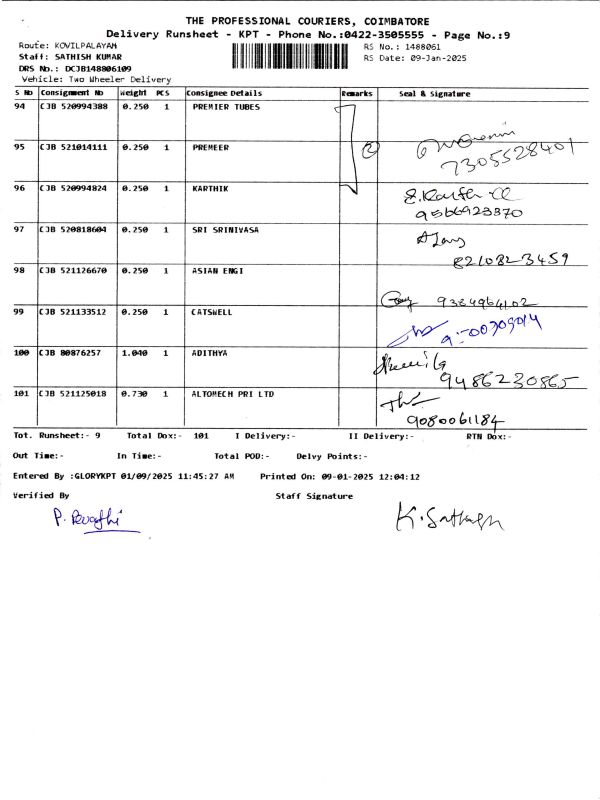 THE PROFESSIONAL COURIERS, COIMBATORE
Delivery Runsheet - KPT - Phone No.:0422-3505555 - Page No.:9
Route: KOVILPALAYAM RS No.: 1488061
Staff: SATHISH KUMAR RS Date: 09-Jan-2025
DRS No.: DCJB148806109
Vehicle: Two Wheeler Delivery
S No Consignment No Weight PCS Consignee Details Remarks Seal & Signature
94 CJB 520994388 0.250 1 PREMIER TUBES
95 CJB 521014111 0.250 1 PREMEER 2 7305528401
96 CJB 520994824 0.250 1 KARTHIK
9566923370
97 CJB 520818604 0.250 1 SRI SRINIVASA
821082-3459
98 CJB 521126670 0.250 1 ASIAN ENGI
9384964102
99 CJB 521133512 0.250 1 CATSWELL
100 CJB 80876257 1.040 1 ADITHYA
9486230865
101 CJB 521125018 0.730 1 ALTOMECH PRI LTD
9080061184
Tot. Runsheet:- 9 Total Dox:- 101 I Delivery:- II Delivery:- RTN Dox:-
Out Time:- In Time:- Total POD:- Delvy Points:-
Entered By :GLORYKPT 01/09/2025 11:45:27 AM Printed On: 09-01-2025 12:04:12
Verified By Staff Signature
P. Revathi K. Sathish